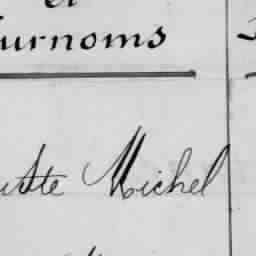 et
urnoms
uste Michel